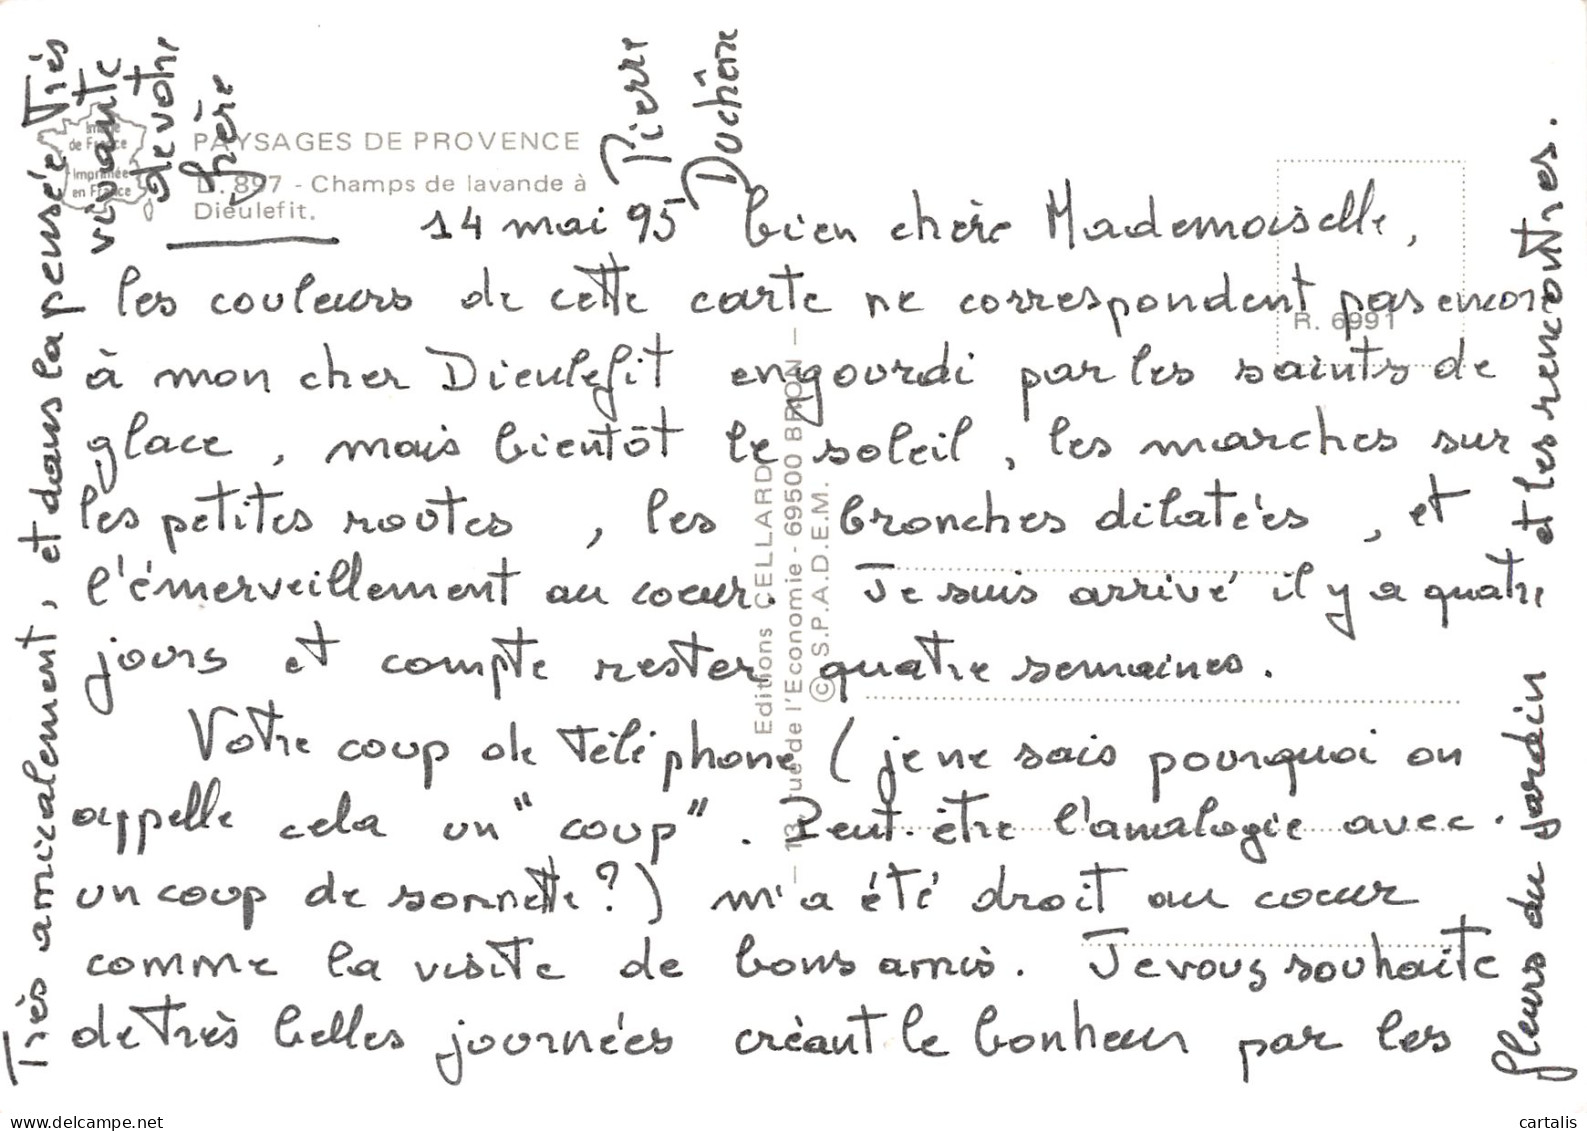 PAYSAGES DE PROVENCE
D. 897 - Champs de lavande à
Dieulefit.
Image
de France
Imprimée
en France
R. 6991
Editions CELLARD
- 13, rue de l'Economie - 69500 BRON -
© S.P.A.D.E.M.
14 mai 95 bien chère Mademoiselle,
les couleurs de cette carte ne correspondent pas encore
à mon cher Dieulefit engourdi par les saints de
glace, mais bientôt le soleil, les marches sur
les petites routes, les bronches dilatées, et
l'émerveillement au coeur. Je suis arrivé il y a quatre
jours et compte rester quatre semaines.
Votre coup de téléphone (je ne sais pourquoi on
appelle cela un "coup". Peut-être l'analogie avec
un coup de sonnette?) m'a été droit au coeur
comme la visite de bons amis. Je vous souhaite
de très belles journées créant le bonheur par les
fleurs du jardin et les rencontres.
Très amicalement, et dans la pensée Très
vivante
de votre
père
Pierre
Duchêne
cartalis
www.delcampe.net